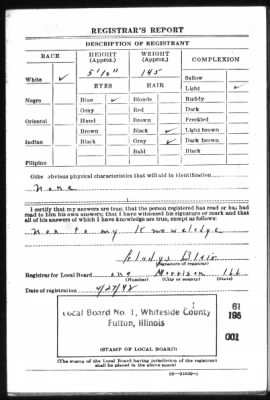 REGISTRAR'S REPORT
DESCRIPTION OF REGISTRANT
RACE HEIGHT (Approx.) WEIGHT (Approx.) COMPLEXION
5'10" 145
White ✓ Sallow
EYES HAIR Light ✓
Negro Blue ✓ Blonde Ruddy
Gray Red Dark
Oriental Hazel Brown Freckled
Brown Black ✓ Light brown
Indian Black Gray ✓ Dark brown
Bald Black
Filipino
Other obvious physical characteristics that will aid in identification
None
I certify that my answers are true; that the person registered has read or has had
read to him his own answers; that I have witnessed his signature or mark and that
all of his answers of which I have knowledge are true, except as follows:
Non to my Knowledge
Gladys
(Signature of registrar)
Registrar for Local Board one Morrison Ill.
(Number) (City or county) (State)
Date of registration 4/27/42
Local Board No. 1, Whiteside County
Fulton, Illinois
61
195
001
(STAMP OF LOCAL BOARD)
(The stamp of the Local Board having jurisdiction of the registrant
shall be placed in the above space)